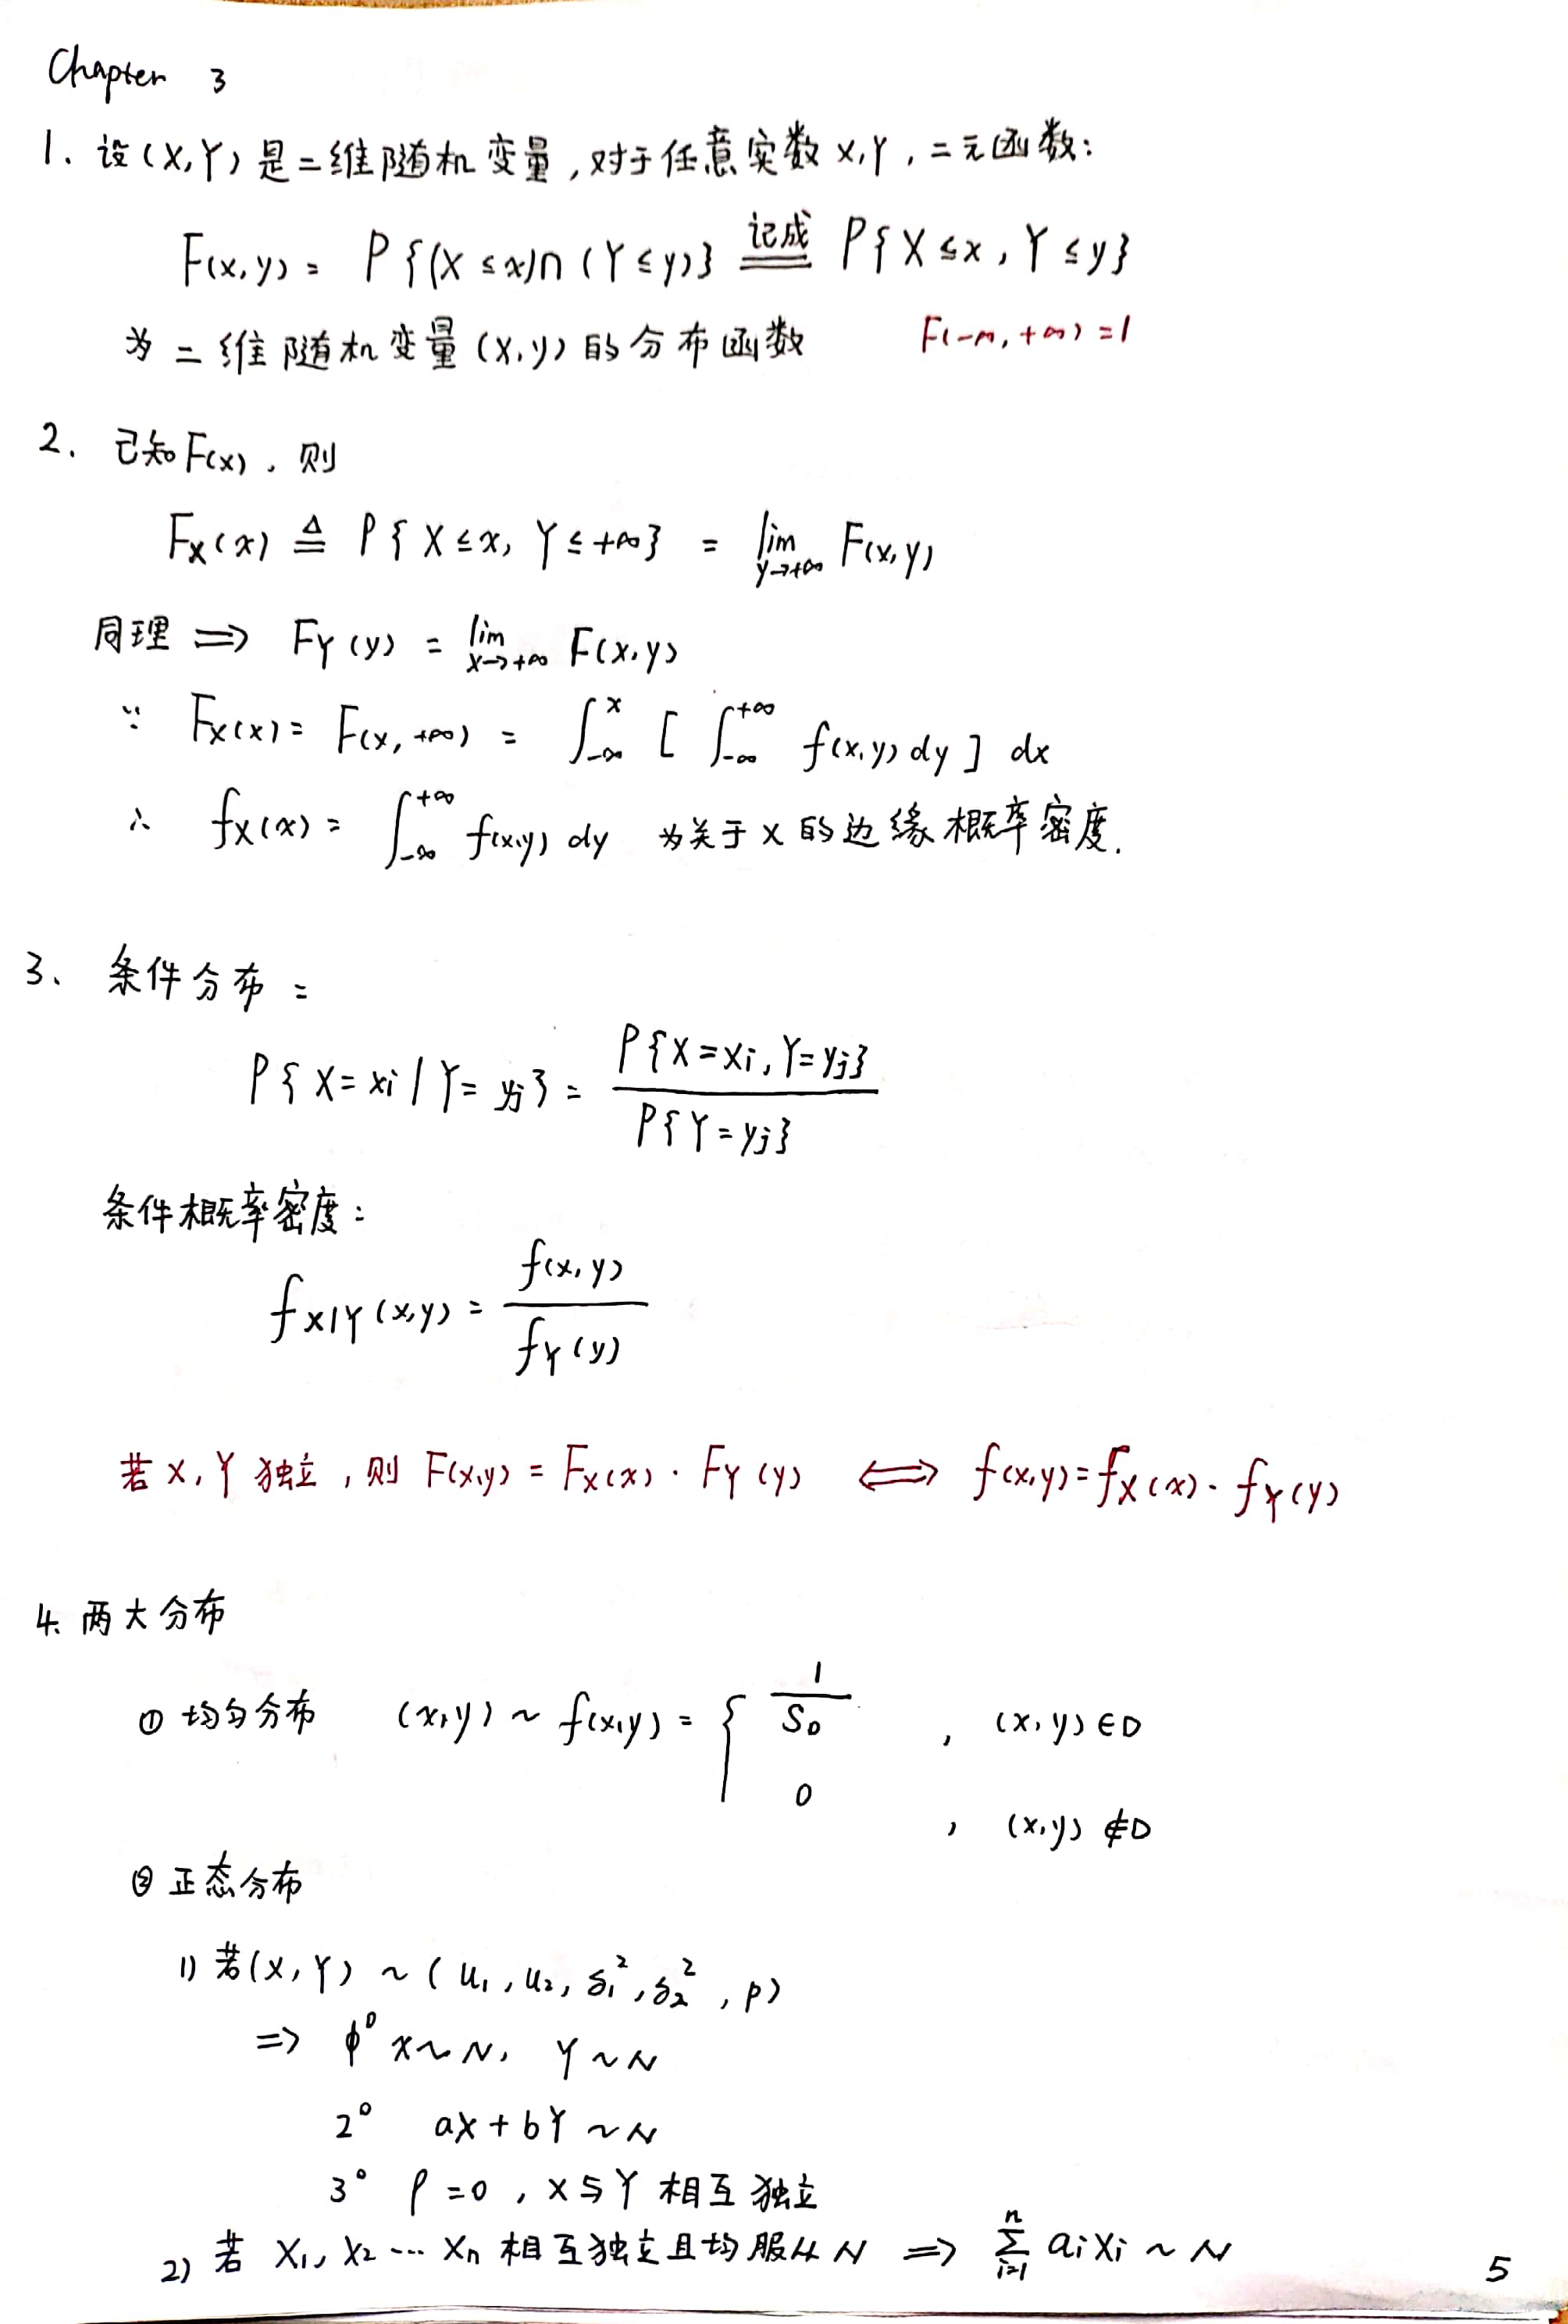 Chapter 3
1. 设(X,Y)是二维随机变量,对于任意实数x,y,二元函数:
F(x,y) = P{(X≤x)∩(Y≤y)} 记成 P{X≤x, Y≤y}
为二维随机变量(X,y)的分布函数 F(-∞,+∞)=1
2. 已知F(x),则
F_X(x) ≜ P{X≤x, Y≤+∞} = lim_{y→+∞} F(x,y)
同理 ⇒ F_Y(y) = lim_{x→+∞} F(x,y)
∵ F_X(x) = F(x,+∞) = ∫_{-∞}^{x} [∫_{-∞}^{+∞} f(x,y)dy] dx
∴ f_X(x) = ∫_{-∞}^{+∞} f(x,y) dy 为关于X的边缘概率密度.
3、条件分布:
P{X=xi|Y=yj} = P{X=xi,Y=yj} / P{Y=yj}
条件概率密度:
f_{X|Y}(x,y) = f(x,y) / f_Y(y)
若X,Y独立,则 F(x,y) = F_X(x)·F_Y(y) ⟺ f(x,y)=f_X(x)·f_Y(y)
4. 两大分布
① 均匀分布 (x,y) ~ f(x,y) = { 1/S_D , (x,y)∈D
0 , (x,y)∉D
② 正态分布
1) 若(X,Y) ~ (u₁, u₂, δ₁², δ₂², ρ)
⇒ 1° X~N, Y~N
2° aX+bY~N
3° ρ=0, X与Y相互独立
2) 若 X₁, X₂ … Xn 相互独立且均服从N ⇒ ∑_{i=1}^{n} aiXi ~ N
5